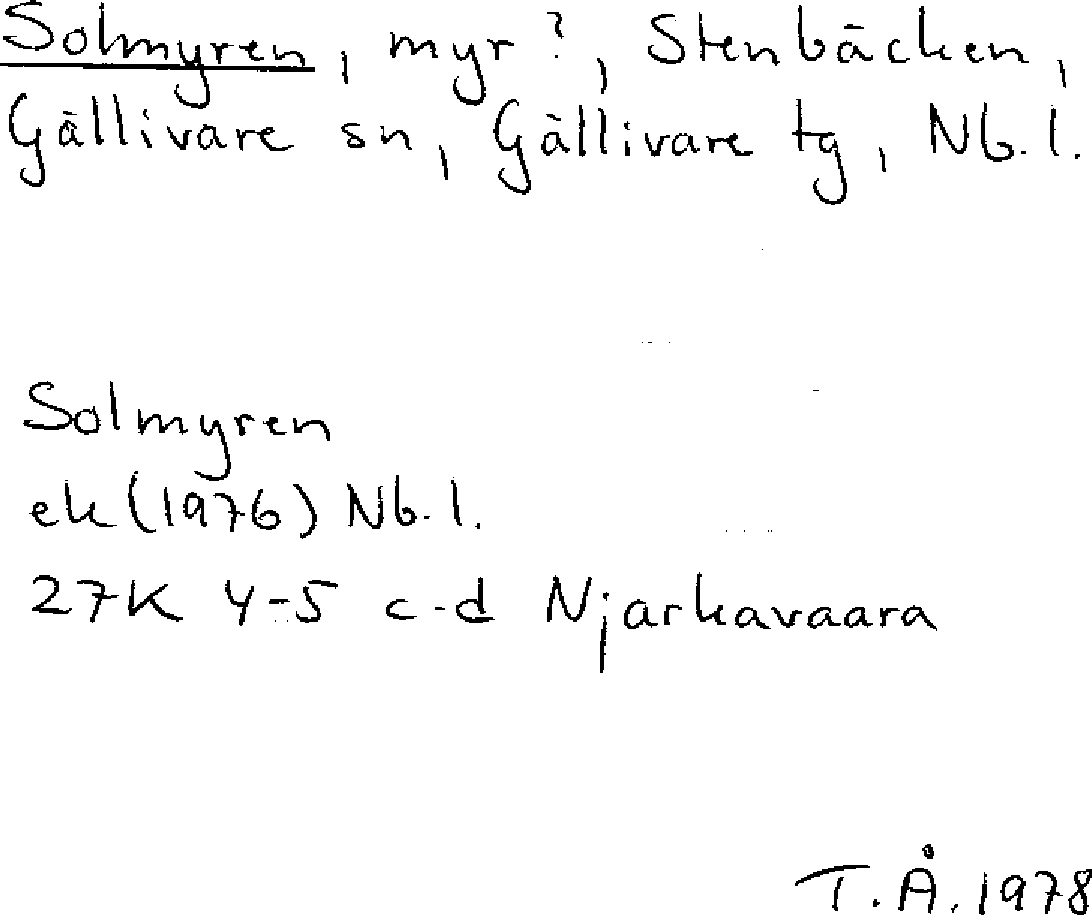 Solmyren, myr?, Stenbäcken,
Gällivare sn, Gällivare tg, Nb.l.
Solmyren
ek (1976) Nb.l.
27K 4-5 c-d Njarkavaara
T.Å. 1978